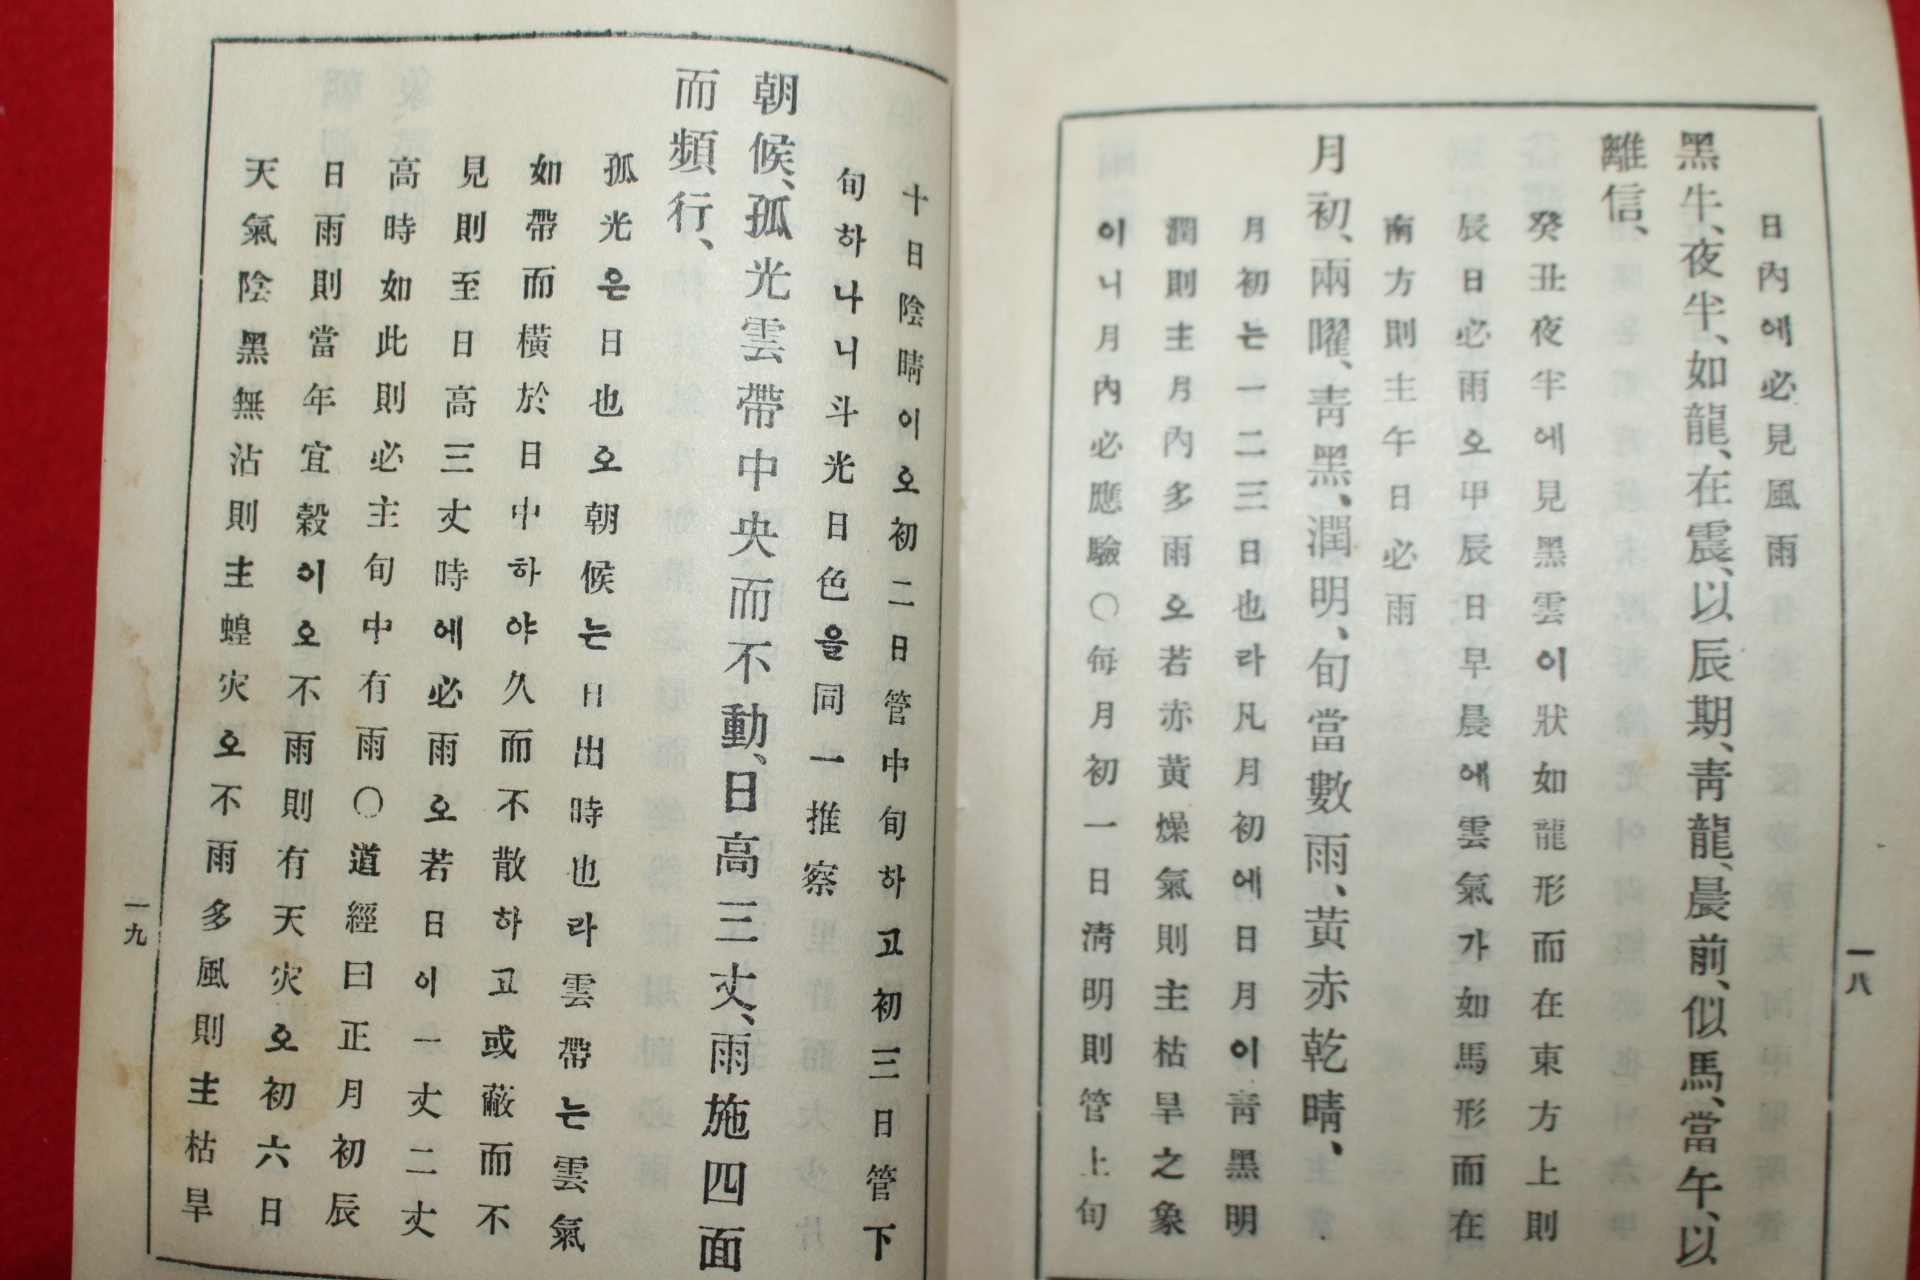 日內에必見風雨
黑牛、夜半、如龍、在震、以辰期、靑龍、晨前、似馬、當午、以
離信、
癸丑夜半에見黑雲이狀如龍形而在東方上則
辰日必雨오甲辰日早晨에雲氣가如馬形而在
南方則主午日必雨
月初、兩曜、靑黑、潤明、旬當數雨、黃赤乾晴、
月初는一二三日也라凡月初에日月이靑黑明
潤則主月內多雨오若赤黃燥氣則主枯旱之象
이니月內必應驗○每月初一日淸明則管上旬
一八
十日陰晴이오初二日管中旬하고初三日管下
旬하나니斗光日色을同一推察
朝候、孤光雲帶中央而不動、日高三丈、雨施四面
而頻行、
孤光은日也오朝候는日出時也라雲帶는雲氣
如帶而橫於日中하야久而不散하고或蔽而不
見則至日高三丈時에必雨오若日이一丈二丈
高時如此則必主旬中有雨○道經曰正月初辰
日雨則當年宜穀이오不雨則有天灾오初六日
天氣陰黑無沾則主蝗灾오不雨多風則主枯旱
一九